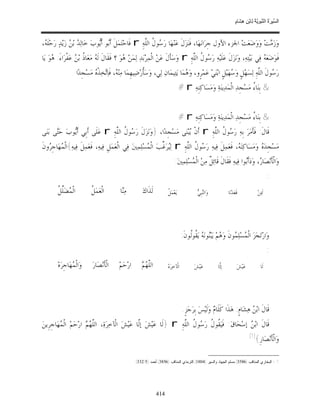 السيرة النبوية لابن هشام
وَرَمَتْ وَوَضَعَتْ الجزء الأول جِرَانَهَا، فَنَزَلَ عَنْهَا رَسُولُ اللَّهِ فَاحْتَمَلَ أَبُو أَيُّوبَ خَالِدُ بْنُ زَيْدٍ رَحْلَهُ،
فَوَضَعَهُ فِي بَيْتِهِ، وَنَزَلَ عَلَيْهِ رَسُولُ اللَّهِ وَسَأَلَ عَنْ الْمِرْبَدِ لِمَنْ هُوَ ؟ فَقَالَ لَهُ مُعَاذُ بْنُ عَفْرَاءَ: هُوَ يَا
رَسُولَ اللَّهِ لِسَهْلٍ وَسُهَيْلٍ ابْنَيْ عَمْرٍو، وَهُمَا يَتِيمَانِ لِي، وَسَأُرْضِيهِمَا مِنْهُ، فَاتَّخِذْهُ مَسْجِدًا
بِنَاءُ مَسْجِدِ الْمَدِينَةِ وَمَسَاكِنِهِ
بِنَاءُ مَسْجِدِ الْمَدِينَةِ وَمَسَاكِنِهِ
قَالَ: فَأَمَرَ بِهِ رَسُولُ اللَّهِ أَنْ يُبْنَى مَسْجِدًا، (وَنَزَلَ رَسُولُ اللَّهِ عَلَى أَبِي أَيُّوبَ حَتَّى بَنَى
مَسْجِدَهُ وَمَسَاكِنَهُ، فَعَمِلَ فِيهِ رَسُولُ اللَّهِ لِيُرَغِّبَ الْمُسْلِمِينَ فِي الْعَمَلِ فِيهِ، فَعَمِلَ فِيهِ الْمُهَاجِرُونَ
وَالْأَنْصَارُ، وَدَأَبُوا فِيهِ فَقَالَ قَائِلٌ مِنْ الْمُسْلِمِينَ:
لَئِنْ قَعَدْنَا وَالنَّبِيُّ يَعْمَلُ لَذَاكَ مِنَّا الْعَمَلُ الْمُضَلَّلُ
وَارْتَجَزَ الْمُسْلِمُونَ وَهُمْ يَبْنُونَهُ يَقُولُونَ:
لَا عَيْشَ إلَّا عَيْشُ الْآخِرَهْ اللَّهُمَّ ارْحَمْ الْأَنْصَارَ وَالْمُهَاجِرَهْ
قَالَ ابْنُ هِشَامٍ: هَذَا كَلَامٌ وَلَيْسَ بِرَجَزٍ.
قَالَ ابْنُ إسْحَاقَ: فَيَقُولُ رَسُولُ اللَّهِ (لَا عَيْشَ إلَّا عَيْشُ الْآخِرَةِ، اللَّهُمَّ ارْحَمْ الْمُهَاجِرِينَ
وَالْأَنْصَارِ)
البخاري المناقب (3586) مسلم الجهاد والسير (1804) الترمذي المناقب (3856) أحمد (332/5)
414